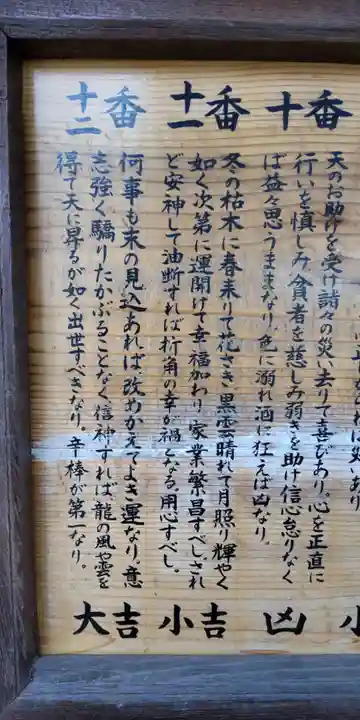 十番
天のお助けを受け諸々の災い去りて喜びあり。心を正直に
行いを慎しみ貧者を慈しみ弱きを助け信心怠りなく
ば益々思うままなり。色に溺れ酒に狂えば凶なり。
凶
十一番
冬の枯木に春来りて花さき黒雲晴れて月照り輝やく
如く次第に運開けて幸福加わり家業繁昌すべし。され
ど安神して油断すれば折角の幸が禍となる。用心すべし。
小吉
十二番
何事も末の見込あれば、改めかえてよき運なり。意
志強く驕りたかぶることなく信神すれば、龍の風や雲を
得て天に昇るが如く出世すべきなり。辛棒が第一なり。
大吉